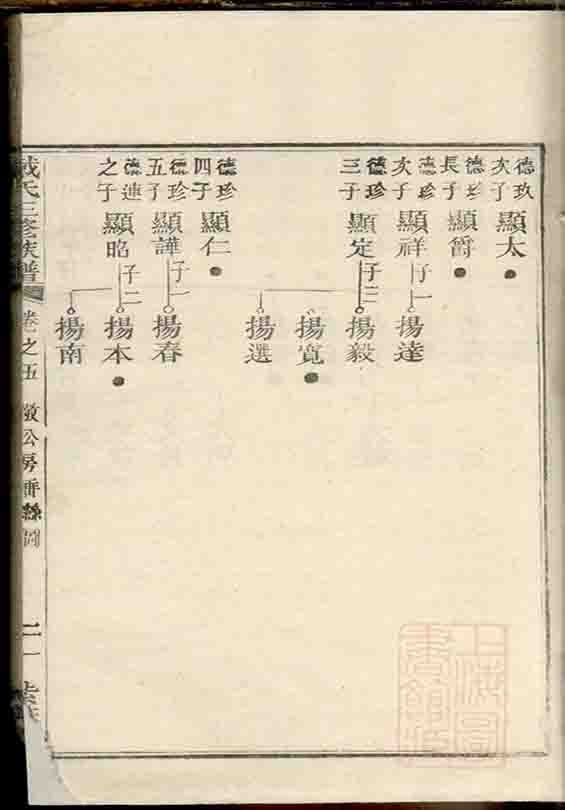 德玖
次子
顯太
德珍
長子
顯爵
德珍
次子
顯祥
子一
揚達
德珍
三子
顯定
子三
揚毅
揚寬
揚選
德珍
四子
顯仁
德珍
五子
顯譁
子一
揚春
德連
之子
顯昭
子二
揚本
揚南
戴氏三修族譜
卷之五
公房
上海圖書館藏